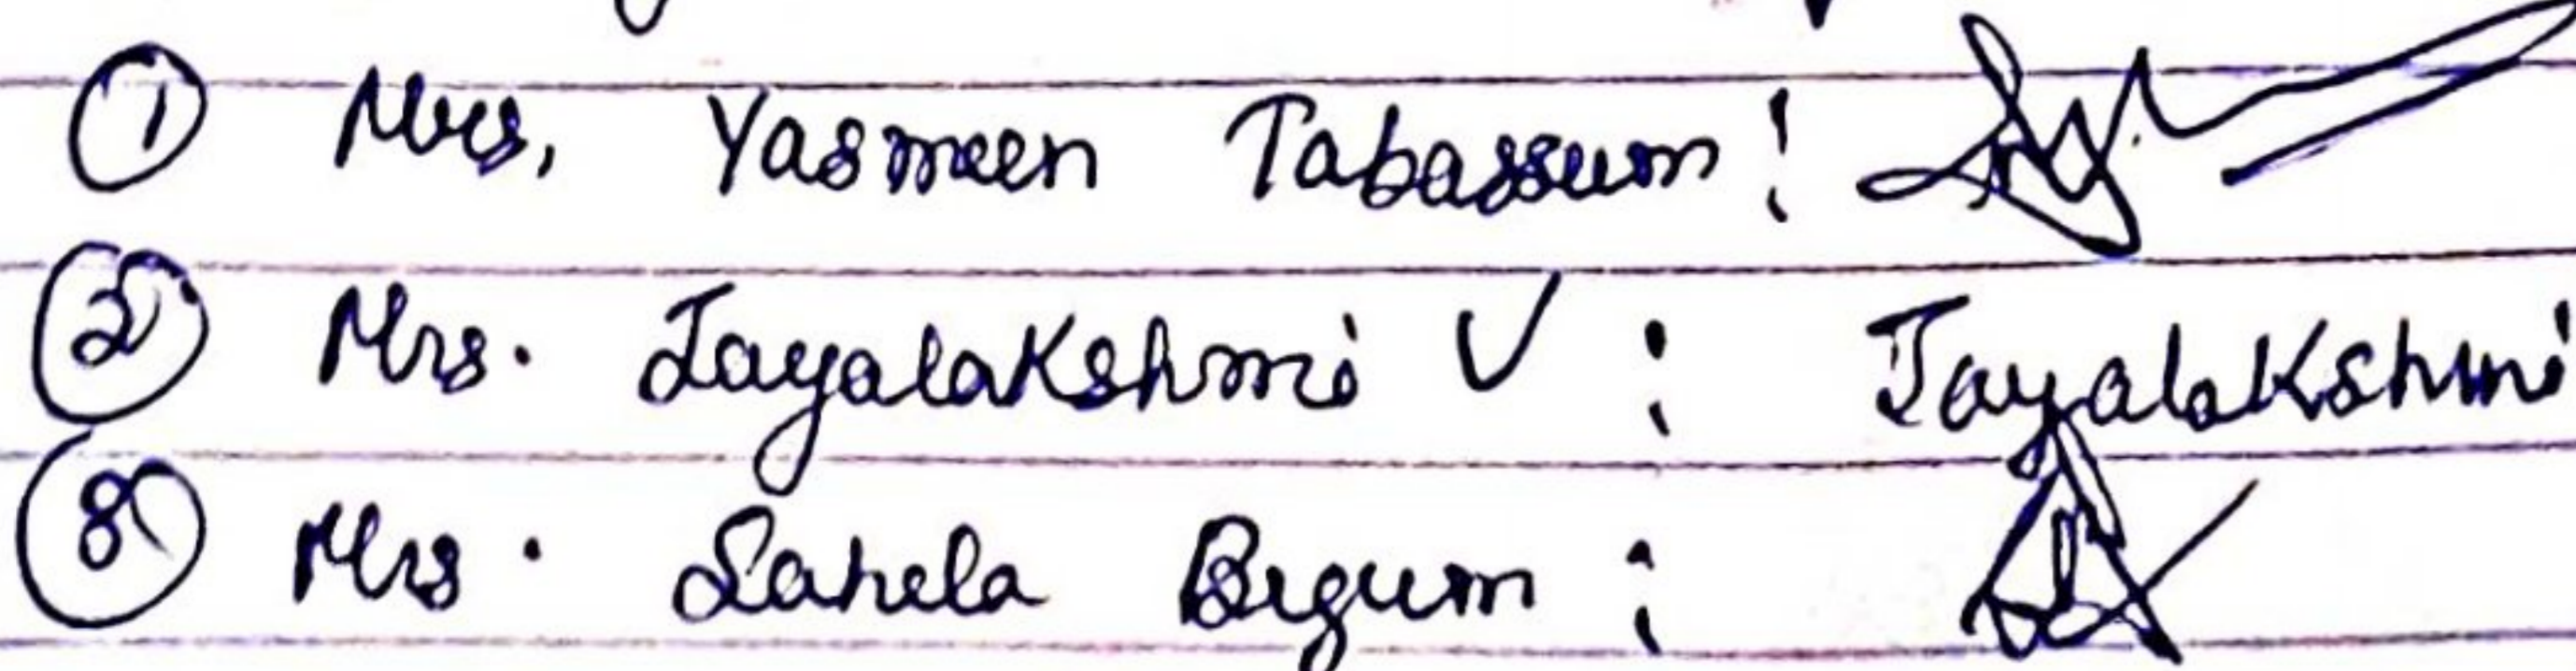 ① Mrs. Yasmeen Tabassum :
② Mrs. Jayalakshmi V : Jayalakshmi
③ Mrs. Sahela Begum :